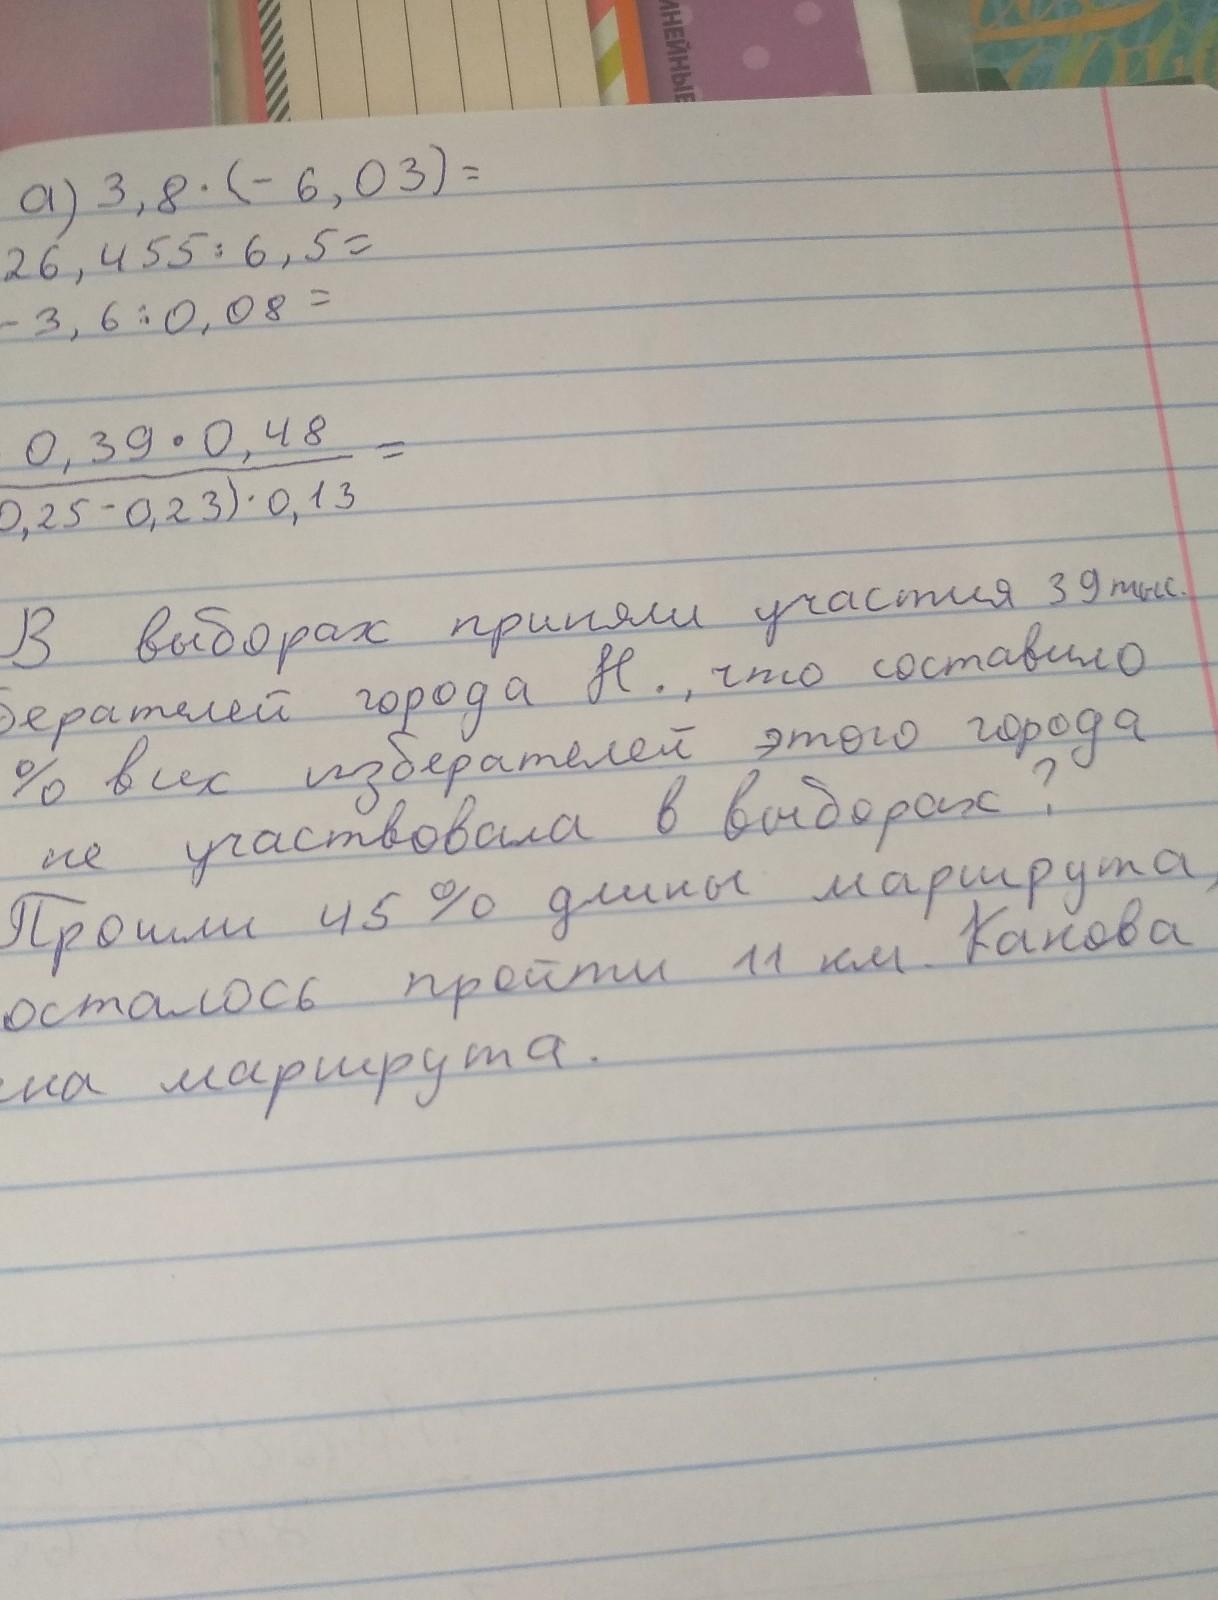 ИНЕЙНЫЕ
а) 3,8·(-6,03)=
26,455:6,5=
-3,6:0,08=
0,39·0,48
=
0,25-0,23)·0,13
В выборах приняли участия 39 тыс.
берателей города Н., что составило
% всех изберателей этого города
не участвовала в выборах?
Прошли 45% длины маршрута,
осталось пройти 11 км. Какова
на маршрута.